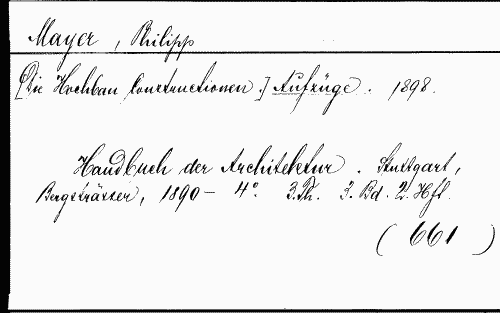 Mayer, Philipp
[Die Hochbau Constructionen.] Aufzüge. 1898.
Handbuch der Architektur. Stuttgart,
Bergsträsser, 1890- 4º. 3.Th. 3.Bd. 2.Hft.
(661)